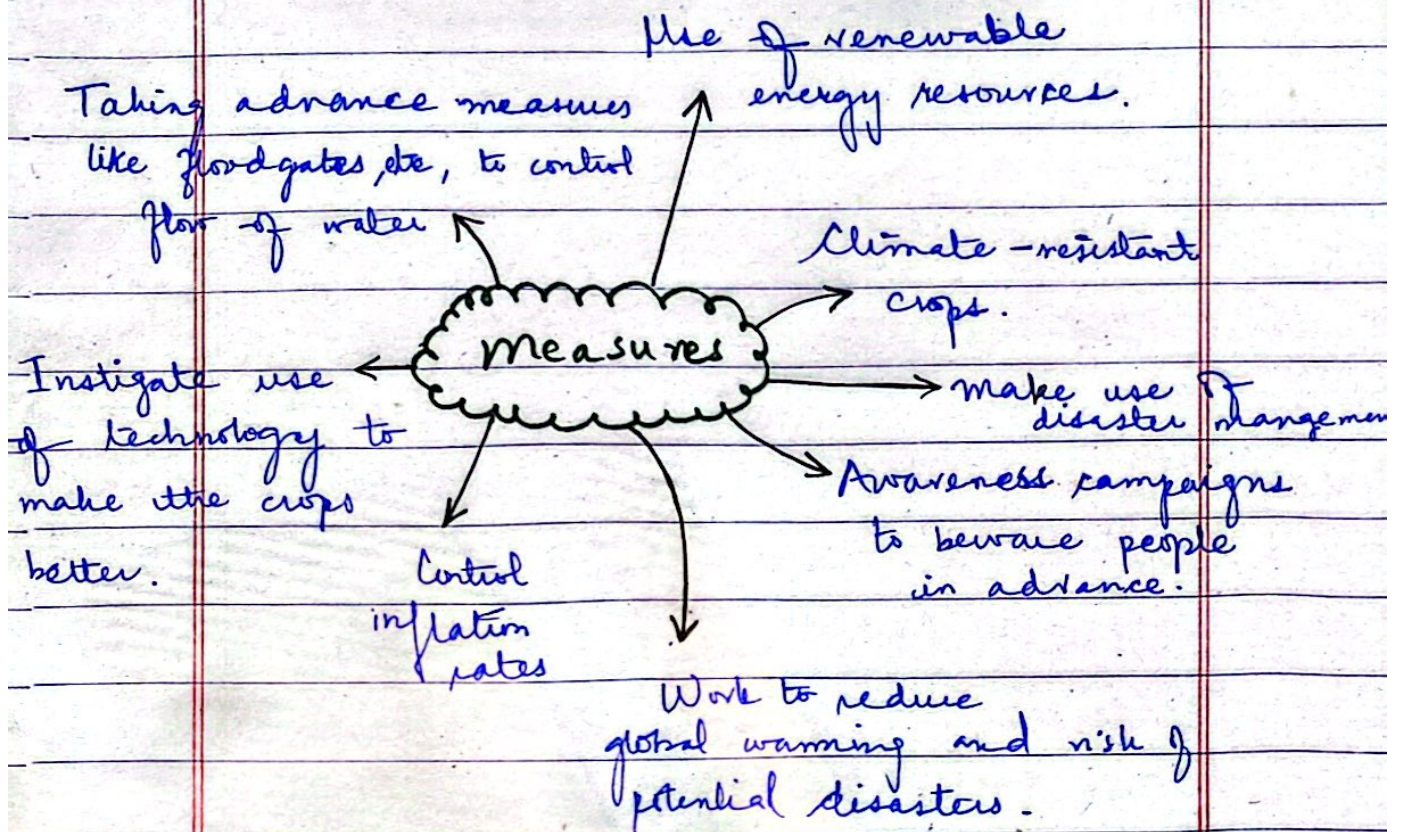 Use of renewable
energy resources.
Taking advance measures
like floodgates, etc, to control
flow of water
Climate-resistant
crops.
Measures
Instigate use
of technology to
make the crops
better.
make use of
disaster mangemen
Awareness campaigns
to beware people
in advance.
Control
inflation
rates
Work to reduce
global warming and risk of
potential disasters.